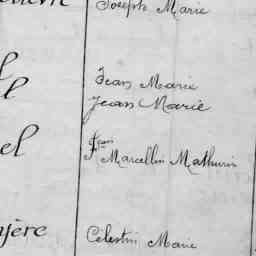 Joseph Marie
Jean Marie
Jean Marie
el
Jean
Marcellin Mathurin
jère
Célestin Marie